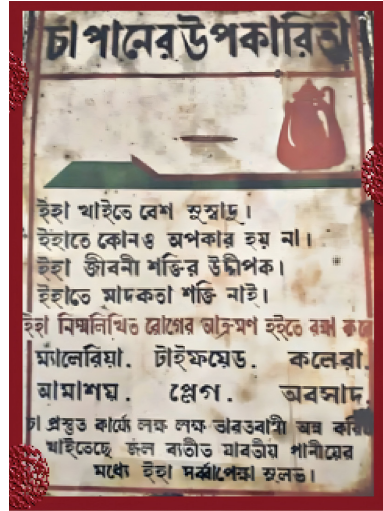 চা পানের উপকারিতা
ইহা খাইতে বেশ সুস্বাদু।
ইহাতে কোনও অপকার হয় না।
ইহা জীবনী শক্তির উদ্দীপক।
ইহাতে মাদকতা শক্তি নাই।
ইহা নিম্নলিখিত রোগের আক্রমণ হইতে রক্ষা করে
ম্যালেরিয়া. টাইফয়েড. কলেরা.
আমাশয়. প্লেগ. অবসাদ.
চা প্রস্তুত কার্য্যে লক্ষ লক্ষ ভারতবাসী অন্ন করিয়া
খাইতেছে জল ব্যতীত যাবতীয় পানীয়ের
মধ্যে ইহা সর্ব্বাপেক্ষা সুলভ।